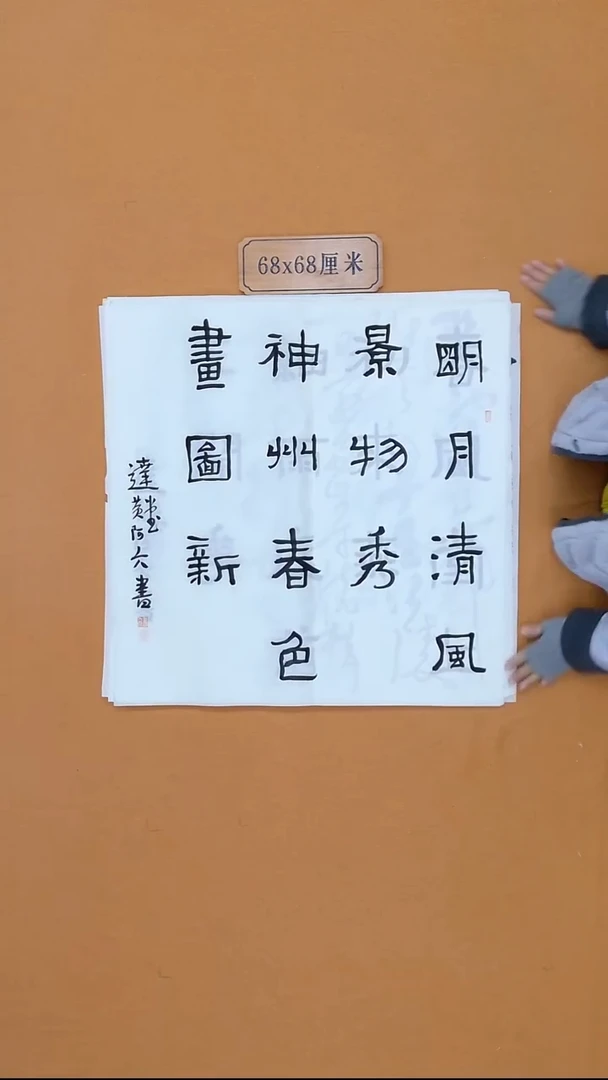 68x68厘米
明月清風
景物秀
神州春色
畫圖新
達黄阿六書